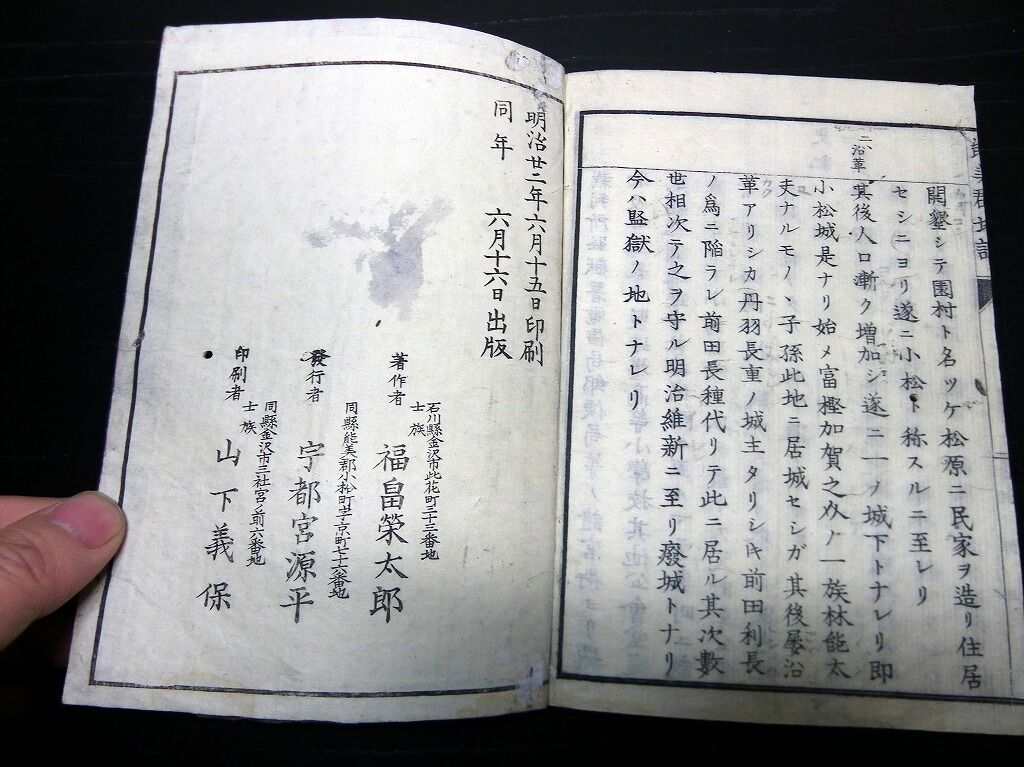 能美郡地誌
二、沿革
開墾シテ園村ト名ツケ松原ニ民家ヲ造リ住居
セシニヨリ遂ニ小松ト称スルニ至レリ
其後人口漸ク増加シ遂ニ一ノ城下トナレリ即
小松城是ナリ始メ富樫加賀之介ノ一族林能太
夫ナルモノ、子孫此地ニ居城セシガ其後屡沿
革アリシカ丹羽長重ノ城主タリシキ前田利長
ノ為ニ陥ラレ前田長種代リテ此ニ居ル其次數
也相次テ之ヲ守ル明治維新ニ至リ廢城トナリ
今ハ監獄ノ地トナレリ
明治廿二年六月十五日印刷
同年 六月十六日出版
著作者
石川縣金沢市此花町三十三番地
士族
福畠榮太郎
發行者
同縣能美郡小松町字京町七十六番地
宇都宮源平
印刷者
同縣金沢市三社宮ノ前六番地
士族
山下義保